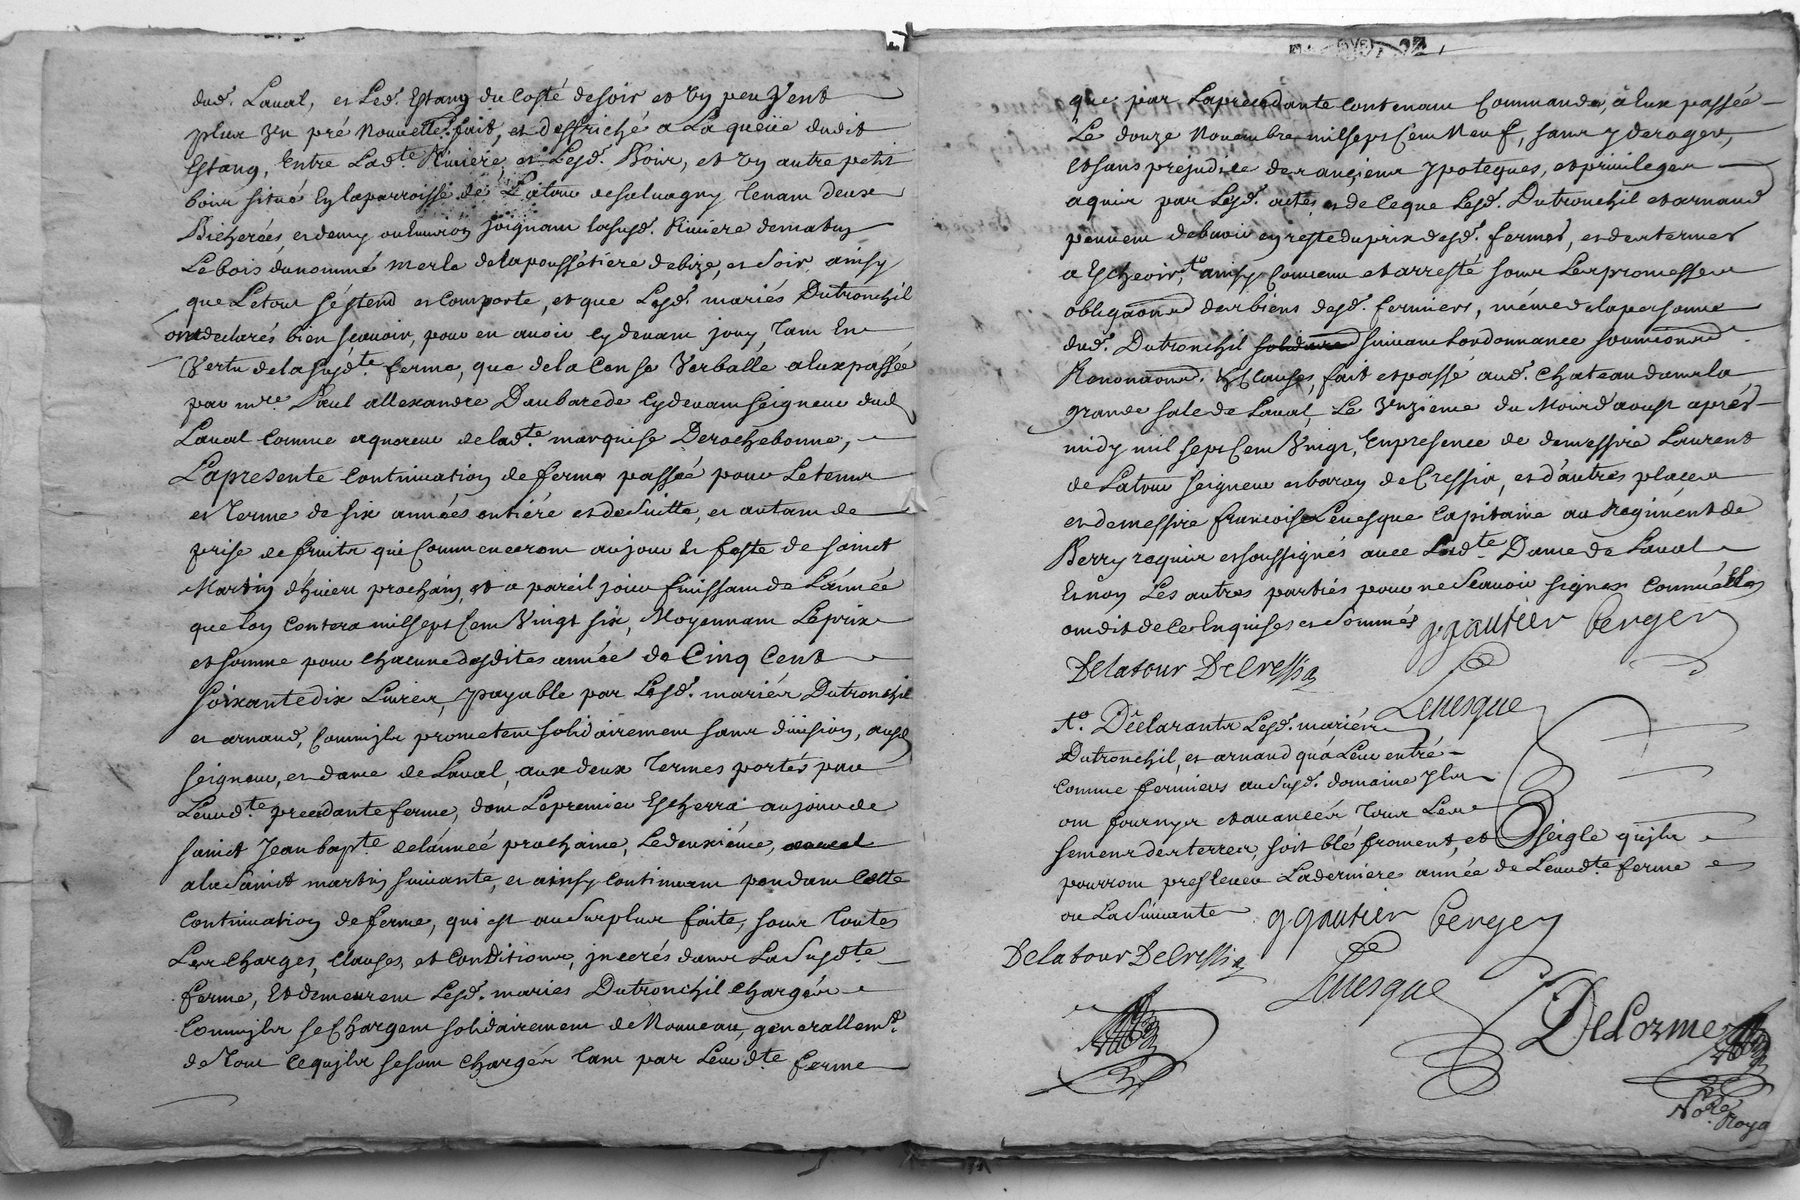 dud. Laual, et Led. Estang du Costé de soir et Un peu Vent
plus Un pré Nouuelle.t fait, et deffriché a La queüe dudit
Estang, Entre Ladte Riuiere, et Lesd. Bois, et Un autre petit
bois situé En laparroisse de Latour desaluagny Tenant deux
Bicherées, et demy ou Enuiron Joignant lasusd. Riuiere dematin
Lebois dunommé merle delapoussétiere debize, et Soir, ainsy
que Letout séstend et Comporte, et que Lesd. mariés Dutronchil
ont declarés bien sçauoir, pour en auoir Cydeuant jouy, Tant En
Vertu delasusdte. ferme, que dela Cense Verballe a luxpassée
par mre. Paul allexandre Daubarede Cydeuant seigneur dud
Laual Comme aquereur deladte. marquise Derochebonne,
Lapresente Continuation de ferme passée pour Letems
et Terme de six années entiéré et desuitte, et autant de
prise de fruits qui Commenceront aujour et feste de sainct
Martin d'hiuert prochain, et a pareil jour finissant de Lánnée
que lon Contera milsept Cent Vingt six, Moyennant Leprix
et somme pour Chacune desdites année de Cinq Cent
soixantedix Liures, payable par Lesd. mariés Dutronchil
et arnaud, Commjls prometent solidairement sans diuision, ausd
seigneur, et dame de Laual, aux deux Termes portés par
Leurdte. precedante ferme, dont Lepremier Escherra aujour de
sainct Jean bapte delánneé prochaine, Ledeuxiéme,
alasainct martin suiuante, et ainsy Continuant pendant Cette
Continuation de ferme, qui est au Surplus faite, sous Toutes
Les Charges, Clauses, et Conditions, jncerés dans La Susdte
ferme, Et demeurent Lesd. mariés Dutronchil Chargés
Commjls se Chargent solidairement de Nouueau, generallemt.
de Tout cequjls sesont Chargés Tant par Leurdte. ferme
que par Laprecedante Contenant Commande, a Eux passée
Le douze Nouembre milsept Cent Neuf, sans y deroger,
et sans prejudice des anciens ypoteques, et priuileges
aquis par Lesd. actes, et de Ceque Lesd. Dutronchil et arnaud
peuuent debuoir en reste du prix desd. fermes, et des termes
a Escheoir, to. ainsy Conuenu et arresté sous Les promesses
obligaõns des biens desd. fermiers, méme de la personne
dud. Dutronchil suiuant Lordonnance soumiõns
Renonaõns. & Clauses, fait et passé aud. Chateau dans la
grande sale de Laual, Le Vnzieme du Mois d'aoust aprés
midy mil sept Cent Vingt, En presence de demessire Laurent
de Latour seigneur et baron de Cressia, et d'autrés places
et demessire francoise Leuesque Capitaine au Regiment de
Berry requis et soussignés auec Ladte. Dame de Laual
Et non Les autres partiés pour ne Scauoir signer Comme Elles
ont dit de Ce Enquises et Sommés g gautier berger
Delatour DeCressia
Leuesque
to. Déclarants Lesd. mariés
Dutronchil, et arnaud quá Leur entré
Comme fermiers au Susd. domaine yls
ont fournys et auancés Tous Les
semens des terres, soit blé froment, et seigle qujls
pourront presleuer Laderniere année de Leurdte. ferme
ou La Suiuante g gautier berger
Delatour DeCressia Leuesque
DeLorme
Nore.
Roya